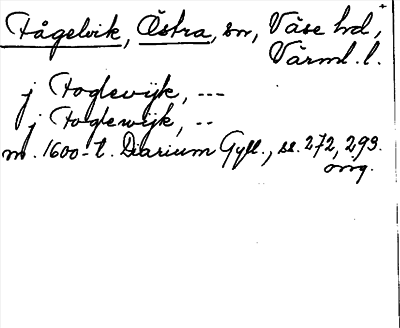 Fågelvik, Östra, sn, Väse hd,
Värml. l.
j Foglevijk, ---
j Foglewijk, --
m. 1600-t. Diarium Gyll., ss. 272, 293.
orig.